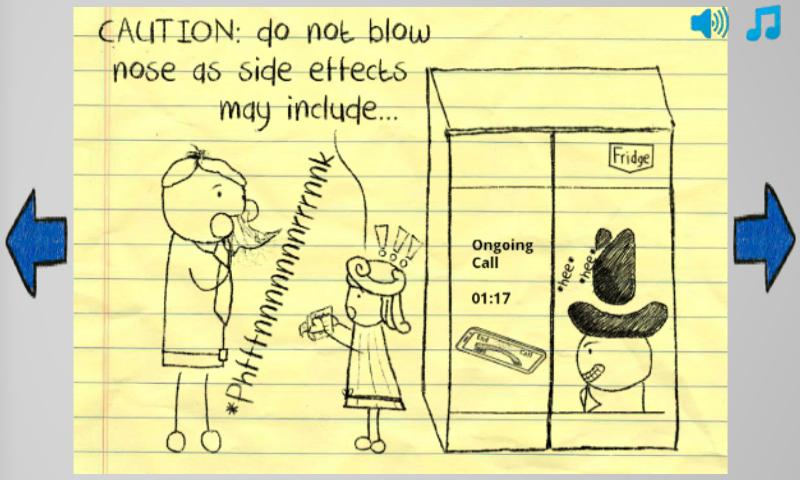 CAUTION: do not blow
nose as side effects
may include...
Fridge
*Phfffnnnnnnnnnrrrnnk
!!!
Ongoing
Call
01:17
*hee*
*hee*
End
Call